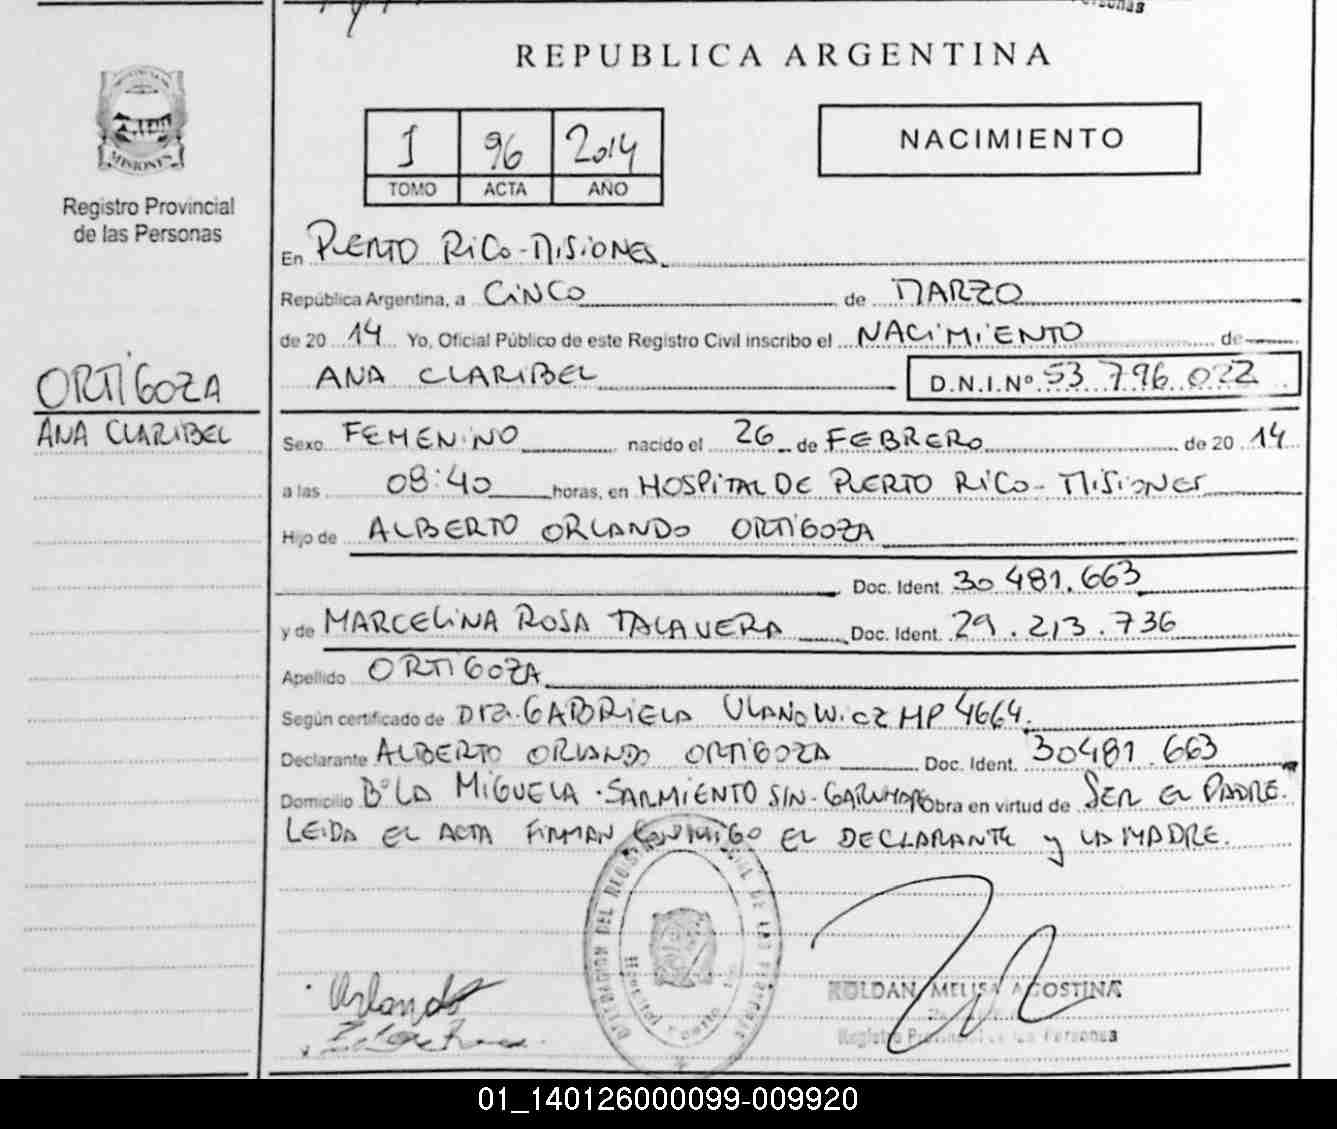 REPUBLICA ARGENTINA
MISIONES
Registro Provincial
de las Personas
1 96 2014
TOMO ACTA AÑO
NACIMIENTO
En PUERTO RICO-MISIONES
República Argentina, a CINCO de MARZO
de 20 14 Yo, Oficial Público de este Registro Civil inscribo el NACIMIENTO de
ANA CLARIBEL D.N.I.Nº 53 796 022
ORTIGOZA
ANA CLARIBEL
Sexo FEMENINO nacido el 26 de FEBRERO de 20 14
a las 08:40 horas, en HOSPITAL DE PUERTO RICO-MISIONES
Hijo de ALBERTO ORLANDO ORTIGOZA
Doc. Ident. 30 481.663
y de MARCELINA ROSA TALAVERA Doc. Ident. 29.213.736
Apellido ORTIGOZA
Según certificado de Dra. GABRIELA ULANOWICZ MP 4664.
Declarante ALBERTO ORLANDO ORTIGOZA Doc. Ident. 30481.663
Domicilio Bº LA MIGUELA-SARMIENTO S/N- Obra en virtud de SER EL PADRE.
LEIDA EL ACTA FIRMAN CONMIGO EL DECLARANTE y LA MADRE.
DELEGACION DEL DE LAS PERSONAS
Orlando
ROLDAN MELISA AGOSTINA
Registro Provincial de las Personas
01_140126000099-009920